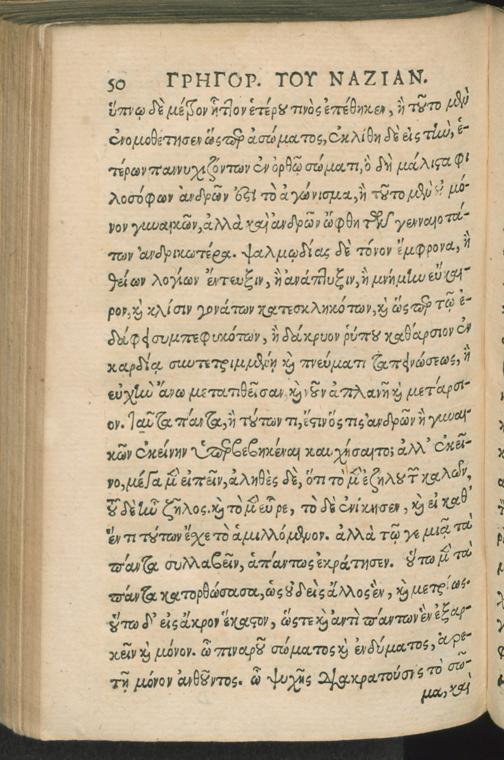 50 ΓΡΗΓΟΡ. ΤΟΥ ΝΑΖΙΑΝ.
ὕπνῳ δὲ μέτρον ἧττον ἑτέρου τινὸς ἐπέθηκεν, ἢ τοῦτο μὲν
ἐνομοθέτησεν ὥσπερ ἀσώματος, ἐκλίθη δὲ εἰς ἑ-
τέρων παννυχιζόντων ἐν ὀρθῷ σώματι, ὃ δὴ μάλιστα φι
λοσόφων ἀνδρῶν ἐστὶ τὸ ἀγώνισμα, ἢ τοῦτο μὲν οὐ μό-
νον γυναικῶν, ἀλλὰ καὶ ἀνδρῶν ὤφθη τῶν γενναιοτά-
των ἀνδρικωτέρα. ψαλμῳδίας δὲ τόνον ἔμφρονα, ἢ
θείων λογίων ἔντευξιν, ἢ ἀνάπτυξιν, ἢ μνήμην εὔκαι-
ρον, καὶ κλίσιν γονάτων κατεσκληκότων, καὶ ὥσπερ τῷ ἐ-
δάφει συμπεφυκότων, ἢ δάκρυον ῥύπου καθάρσιον ἐν
καρδίᾳ συντετριμμένῃ καὶ πνεύματι ταπεινώσεως, ἢ
εὐχὴν ἄνω μετατιθεῖσαν, καὶ νοῦν ἀπλανῆ καὶ μετάρσι-
ον. Ταῦτα πάντα, ἢ τούτων τι, ἔστιν ὅς τις ἀνδρῶν ἢ γυναι-
κῶν ἐκείνην ὑπερβεβηκέναι καυχήσαιτο; ἀλλ' ἐκεῖ-
νο, μέγα μὲν εἰπεῖν, ἀληθὲς δὲ, ὅτι τὸ μὲν ἐζήλου τῶν καλῶν,
τοῦ δὲ ἦν ζῆλος. καὶ τὸ μὲν εὗρε, τὸ δὲ ἐνίκησεν, καὶ εἰ καθ'
ἕν τι τούτων ἔχε τὸ ἁμιλλόμενον. ἀλλὰ τῷ γε μιᾷ τὰ
πάντα συλλαβεῖν, ἁπάντως ἐκράτησεν. οὕτω μὲν τὰ
πάντα κατορθώσασα, ὡς οὐδεὶς ἄλλος ἓν, καὶ μετρίως.
οὕτω δ' εἰς ἄκρον ἕκαστον, ὥστε καὶ ἀντὶ πάντων ἓν ἐξαρ-
κεῖν καὶ μόνον. ὢ πιναροῦ σώματος καὶ ἐνδύματος, ἀρε-
τῇ μόνον ἀνθοῦντος. ὢ ψυχῆς διακρατούσης τὸ σῶ-
μα, καὶ